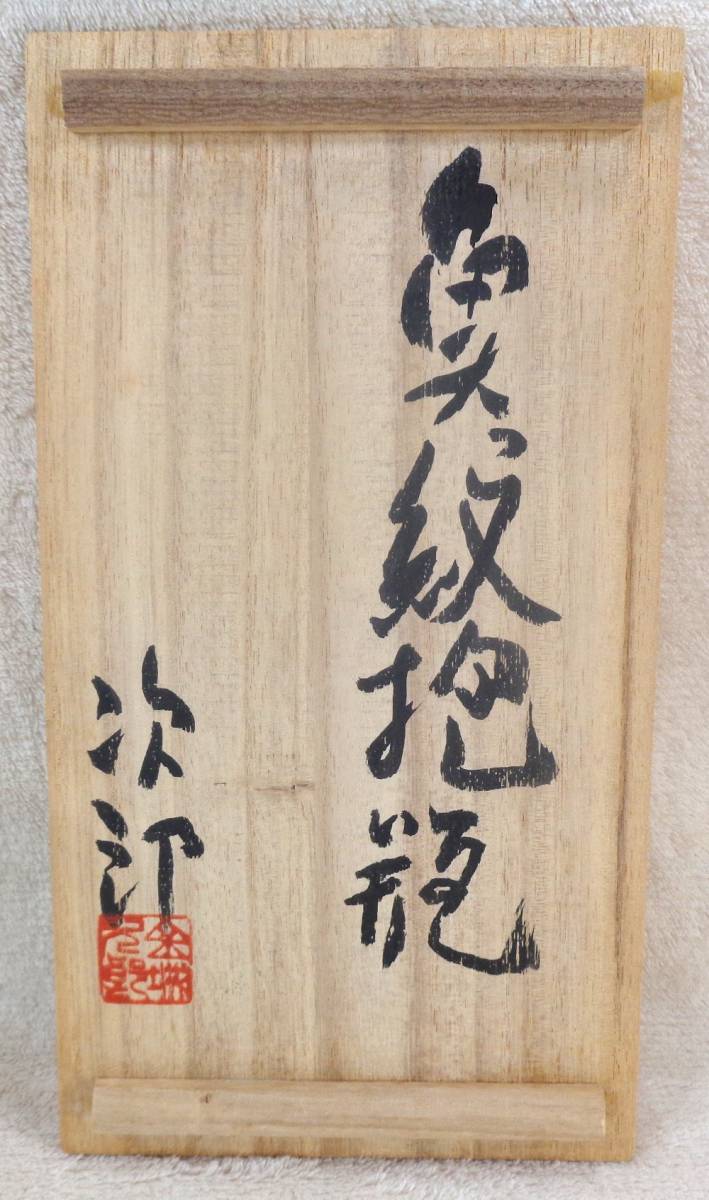 魚紋抱瓶
次郎